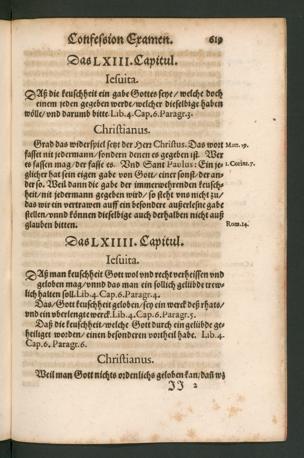 Confession Examen. 619
Das LXIII. Capitul.
Iesuita.
Daß die keuschheit ein gabe Gottes seye/ welche doch
einem jeden gegeben werde/ welcher dieselbige haben
wölle/ vnd darumb bitte. Lib.4. Cap.6. Paragr.3.
Christianus.
Grad das widerspiel sagt der Herr Christus. Das wort Mat. 19.
fasset nit jedermann/ sondern denen es gegeben ist. Wer
es fassen mag/ der fasse es. Vnd Sant Paulus: Ein je- 1. Corint. 7.
glicher hat sein eigen gabe von Gott/ einer sonst/ der an-
der so. Weil dann die gabe der immerwehrenden keusch-
heit/ nit jedermann gegeben wird/ so steht vns nicht zu/
das wir ein vertrawen auff ein besonder außerlesne gabe
stellen/ vnnd können dieselbige auch derhalben nicht auß
glauben bitten. Rom. 14.
Das LXIIII. Capitul.
Iesuita.
Daß man keuschheit Gott wol vnd recht verheissen vnd
geloben mag/ vnnd das man ein sollich gelübd trew-
lich halten soll. Lib.4. Cap.6. Paragr.4.
Das/ Gott keuschheit geloben/ sey ein werck deß rhats/
vnd ein vberlengte werck. Lib.4. Cap.6. Paragr.5.
Daß die keuschheit/ welche Gott durch ein gelübde ge-
heiliget worden/ einen besonderen vortheil habe. Lib.4.
Cap.6. Paragr.6.
Christianus.
Weil man Gott nichts ordenlichs geloben kan/ dann wz
JJ 2